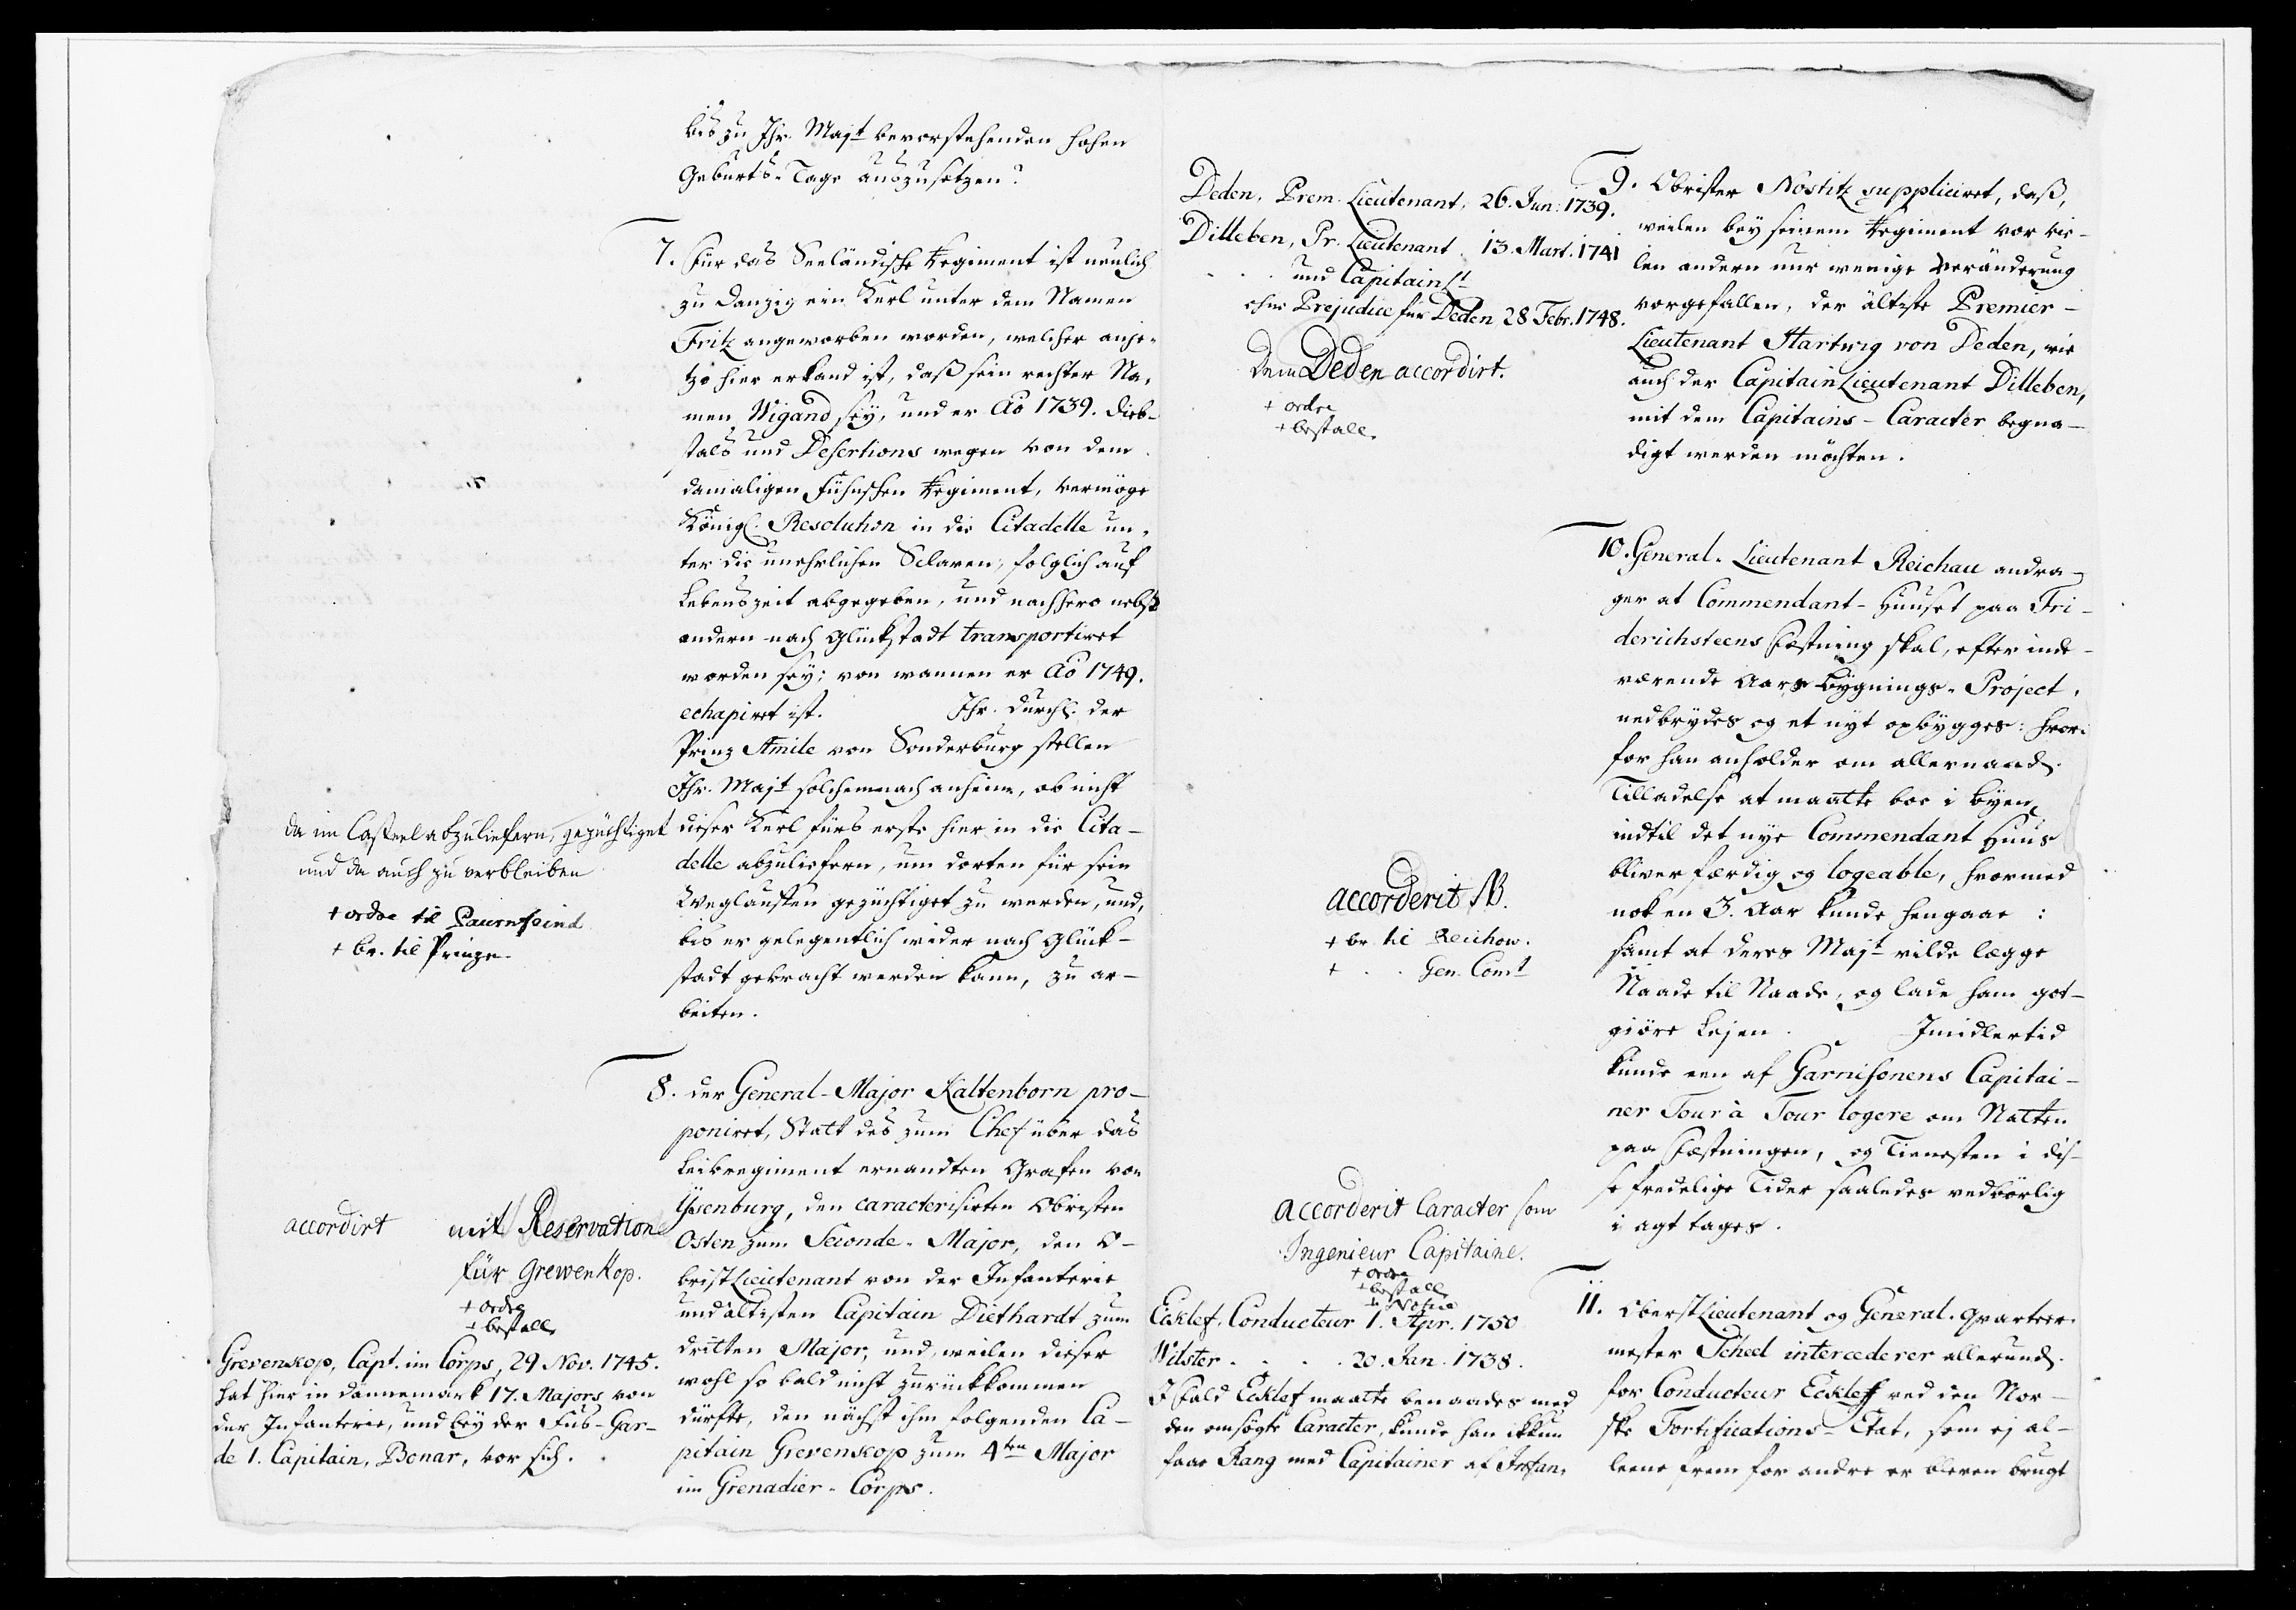 bis zu Ihr. Majt bevorstehenden hohen
Geburts-Tage auszusetzen?
7. Für das Seeländische Regiment ist neulich
zu Danzig ein Kerl unter dem Namen
Fritz angeworben worden, welcher anje-
tzo hier erkand ist, daß sein rechter Na-
men Wigand sey, und er Ao 1739. Dieb-
stals und Desertions wegen von dem
damaligen Fühnschen Regiment, vermöge
Königl. Resolution in die Citadelle un-
ter die unehrlichen Sclaven, folglich auf
Lebenszeit abgegeben, und nachhero nebst
andern nach Glückstadt transportiret
worden sey; von wannen er Ao 1749.
echapiret ist. Ihr. Durchl. der
Prinz Emile von Sonderburg stellen
Ihr. Majt solchemnach anheim, ob nicht
dieser Kerl fürs erste hier in die Cita-
delle abzuliefern, um dorten für sein
Weglauffen gezüchtiget zu werden, und,
bis er gelegentlich wider nach Glück-
stadt gebracht werden kann, zu ar-
beiten.
da im Casteel abzuliefern, gezüchtiget
und da auch zu verbleiben
+ ordre til Paurnfeind
+ br. til Prinzen
8. Der General-Major Kaltenborn pro-
poniret, Statt des zum Chef über das
Leibregiment ernandten Grafen von
Ysenburg, den caracterisirten Obristen
Osten zum Seconde-Major, den O-
bristLieutenant von der Infanterie
und ältisten Capitain Diethardt zum
dritten Major, und, weilen dieser
wohl so bald nicht zurückkommen
dürfte, den nächst ihm folgenden Ca-
pitain Grevenkop zum 4ten Major
im Grenadier-Corps.
accordirt mit Reservation
für Grewenkop.
+ ordre
+ bestall.
Grevenkop, Capt. im Corps, 29 Nov. 1745.
hat hier in Dannemark 17. Majors von
der Infanterie, und bey der Fus-Gar-
de 1. Capitain, Bonar, vor sich.
Deden, Prem. Lieutenant, 26. Jun. 1739.
Dilleben, Pr. Lieutenant. 13. Mart. 1741
. . . und Capitain Lt
ohne Prejudice für Deden 28 Febr. 1748.
Dem Deden accordirt.
+ ordre
+ bestall.
9. Obrister Nostitz suppliciret, daß,
weilen bey seinem Regiment vor vie-
len andern nur wenige Veränderung
vorgefallen, der älteste Premier-
Lieutenant Hartwig von Deden, wie
auch der CapitainLieutenant Dilleben,
mit dem Capitains-Caracter begna-
digt werden möchten.
10. General-Lieutenant Reichau andra-
ger at Commendant-Huuset paa Fri-
derichsteens Fæstning skal, efter inde-
værende Aars Bygnings-Project,
nedbrydes og et nyt opbygges: hvor-
for han anholder om allernaad.
Tilladelse at maatte boe i Byen,
indtil det nye Commendant Huus
bliver færdig og logeable, hvormed
nok en 3. Aar kunde hengaae:
samt at deres Majt vilde lægge
Naade til Naade, og lade ham got-
giöre Lejen. Imidlertid
kunde een af Garnisonens Capitai-
ner Tour à Tour logere om Natten
paa Fæstningen, og Tienesten i dis-
se fredelige Tider saaledes vedbörlig
i agt tages.
accorderit NB.
+ br. til Reichow.
+ . . Gen. Comt
accorderit Caracter som
Ingenieur Capitaine.
+ ordre
+ bestall.
+ Notice
Ecklef, Conducteur 1. Apr. 1750
Wilster . . . . 20. Jan. 1738.
I fald Ecklef maatte benaades med
den omsögte Caracter, kunde han ikkun
faae Rang med Capitainer af Infan-
11. OberstLieutenant og General-Qvarteer-
mester Scheel intercederer allerund.
for Conducteur Ecklef ved den Nor-
ske Fortifications-Etat, som ej al-
leene frem for andre er bleven brugt